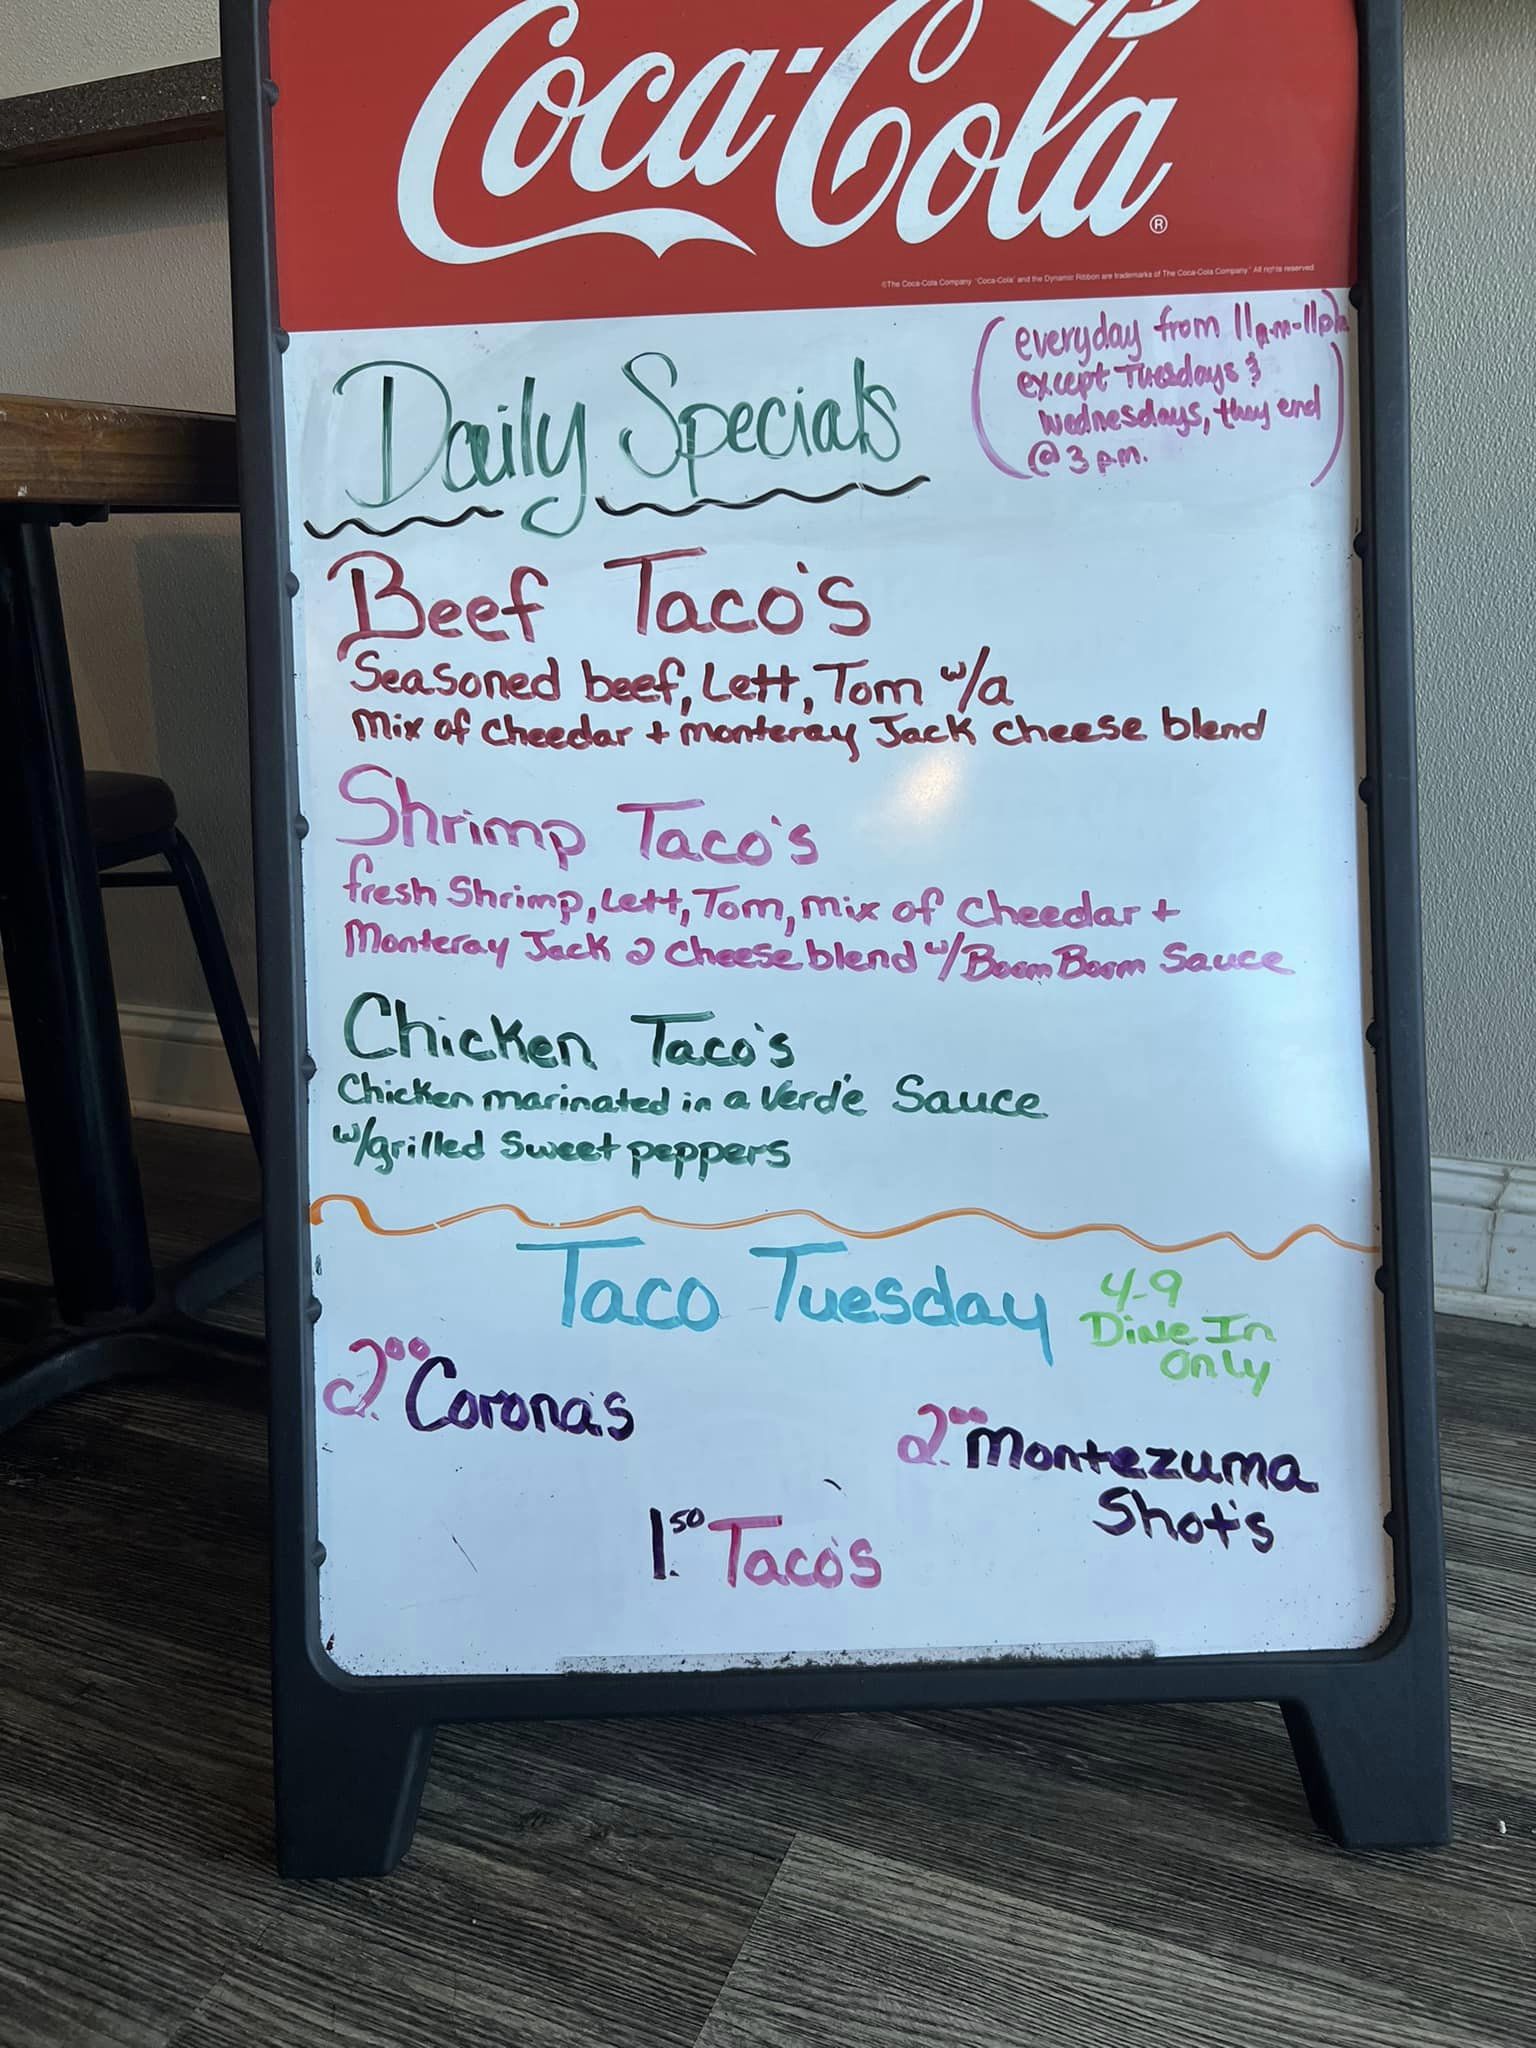 Coca-Cola
®
©The Coca-Cola Company "Coca-Cola" and the Dynamic Ribbon are trademarks of The Coca-Cola Company. All rights reserved.
(everyday from 11a.m-11pm
except Tuesdays &
wednesdays, they end
@ 3 p.m.)
Daily Specials
Beef Taco's
Seasoned beef, Lett, Tom w/a
Mix of cheedar + monteray Jack cheese blend
Shrimp Taco's
fresh Shrimp, Lett, Tom, mix of cheedar +
Monteray Jack 2 cheese blend w/Boom Boom Sauce
Chicken Taco's
Chicken marinated in a Verdé Sauce
w/grilled Sweet peppers
Taco Tuesday
4-9
Dine In
Only
2.00 Corona's
2.00 Montezuma
Shot's
1.50 Taco's